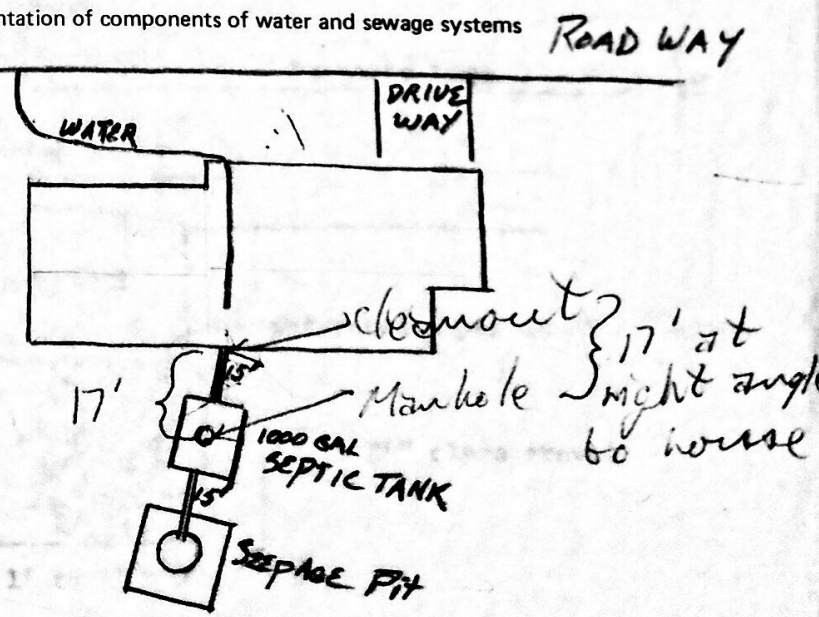 ntation of components of water and sewage systems
ROAD WAY
DRIVE
WAY
WATER
cleanout
17' at
right angle
to house
15'
17'
Manhole
1000 GAL
SEPTIC TANK
15'
SEEPAGE Pit